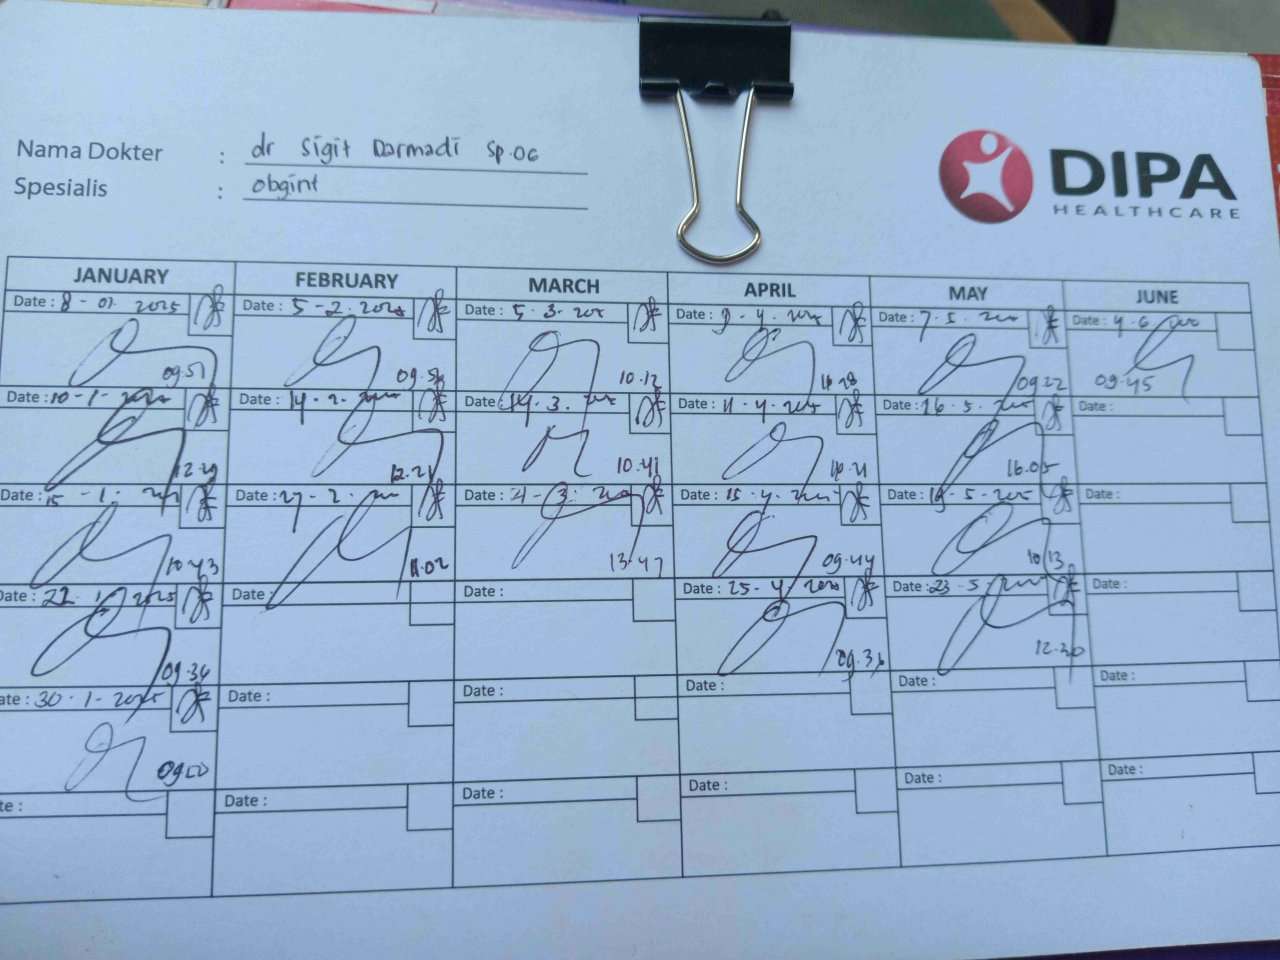 Nama Dokter : dr Sigit Darmadi Sp.OG
Spesialis : obgint
DIPA
HEALTHCARE
JANUARY FEBRUARY MARCH APRIL MAY JUNE
Date : 8 - 01. 2025 Date : 5 - 2. 2025 Date : 5. 3. Date : 4. Date : 7. 5. Date : 4. 6
09.51 09.54 10.12 09.22 09.45
Date : 10 - 1 - Date : 14 - 2. Date : 14. 3. Date : 11. 4. 2025 Date : 16. 5. Date :
12.29 12.21 10.41 16.05
Date : 15 - 1. Date : 27 - 2. Date : 3. Date : 15. 4. Date : 19. 5. 2025 Date :
10.43 11.02 13.47 09.44 10.13
Date : 22. 1. 2025 Date : Date : Date : 25. 4. 2025 Date : 23 - 5. Date :
09.36 09.36 12.30
ate : 30 - 1 - 2025 Date : Date : Date : Date : Date :
09.00
te : Date : Date : Date : Date : Date :